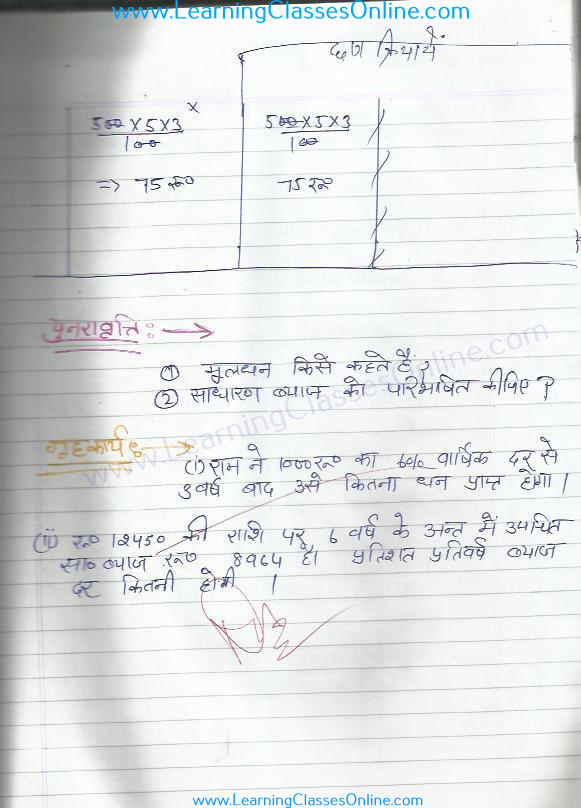 www.LearningClassesOnline.com
छात्र क्रियायें
500 x 5 x 3 x
100
500 x 5 x 3
100
=> 75 रू०
75 रू०
पुनरावृत्ति : →
① मूलधन किसे कहते हैं ?
② साधारण ब्याज को परिभाषित कीजिए ?
www.LearningClassesOnline.com
गृहकार्य : →
(i) राम ने 1000 रू० का 6% वार्षिक दर से
3 वर्ष बाद उसे कितना धन प्राप्त होगा ।
(ii) रू० 12450 की राशि पर 6 वर्ष के अन्त में उपचित
सा० ब्याज रू० 8964 है। प्रतिशत प्रतिवर्ष ब्याज
दर कितनी होगी ।
www.LearningClassesOnline.com